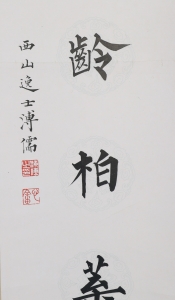 齡柏葉
西山逸士溥儒